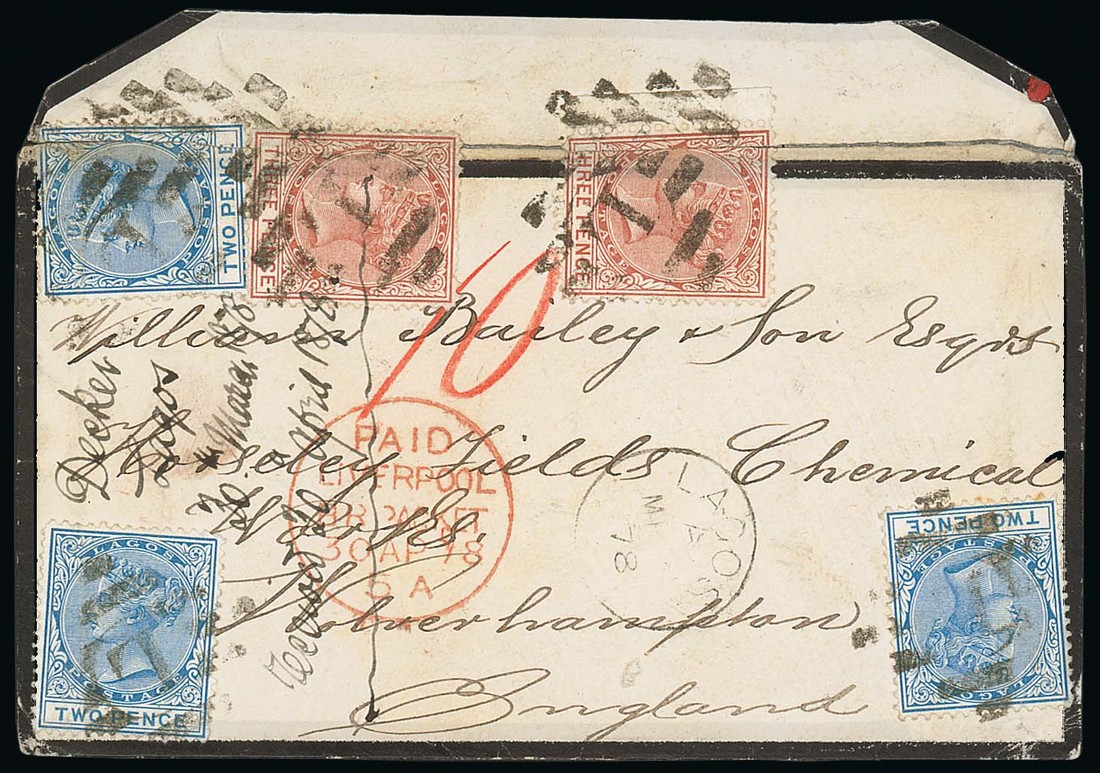 LAGOS POSTAGE
TWO PENCE
LAGOS POSTAGE
THREE PENCE
LAGOS POSTAGE
THREE PENCE
10
William Bailey & Son Esqrs
Horseley Fields Chemical
Works.
Wolverhampton
England
Decker
Lagos
April 1878
PAID
LIVERPOOL
BR PACKET
30 AP 78
5 A
LAGOS
78
LAGOS
POSTAGE
TWO PENCE
LAGOS
POSTAGE
TWO PENCE